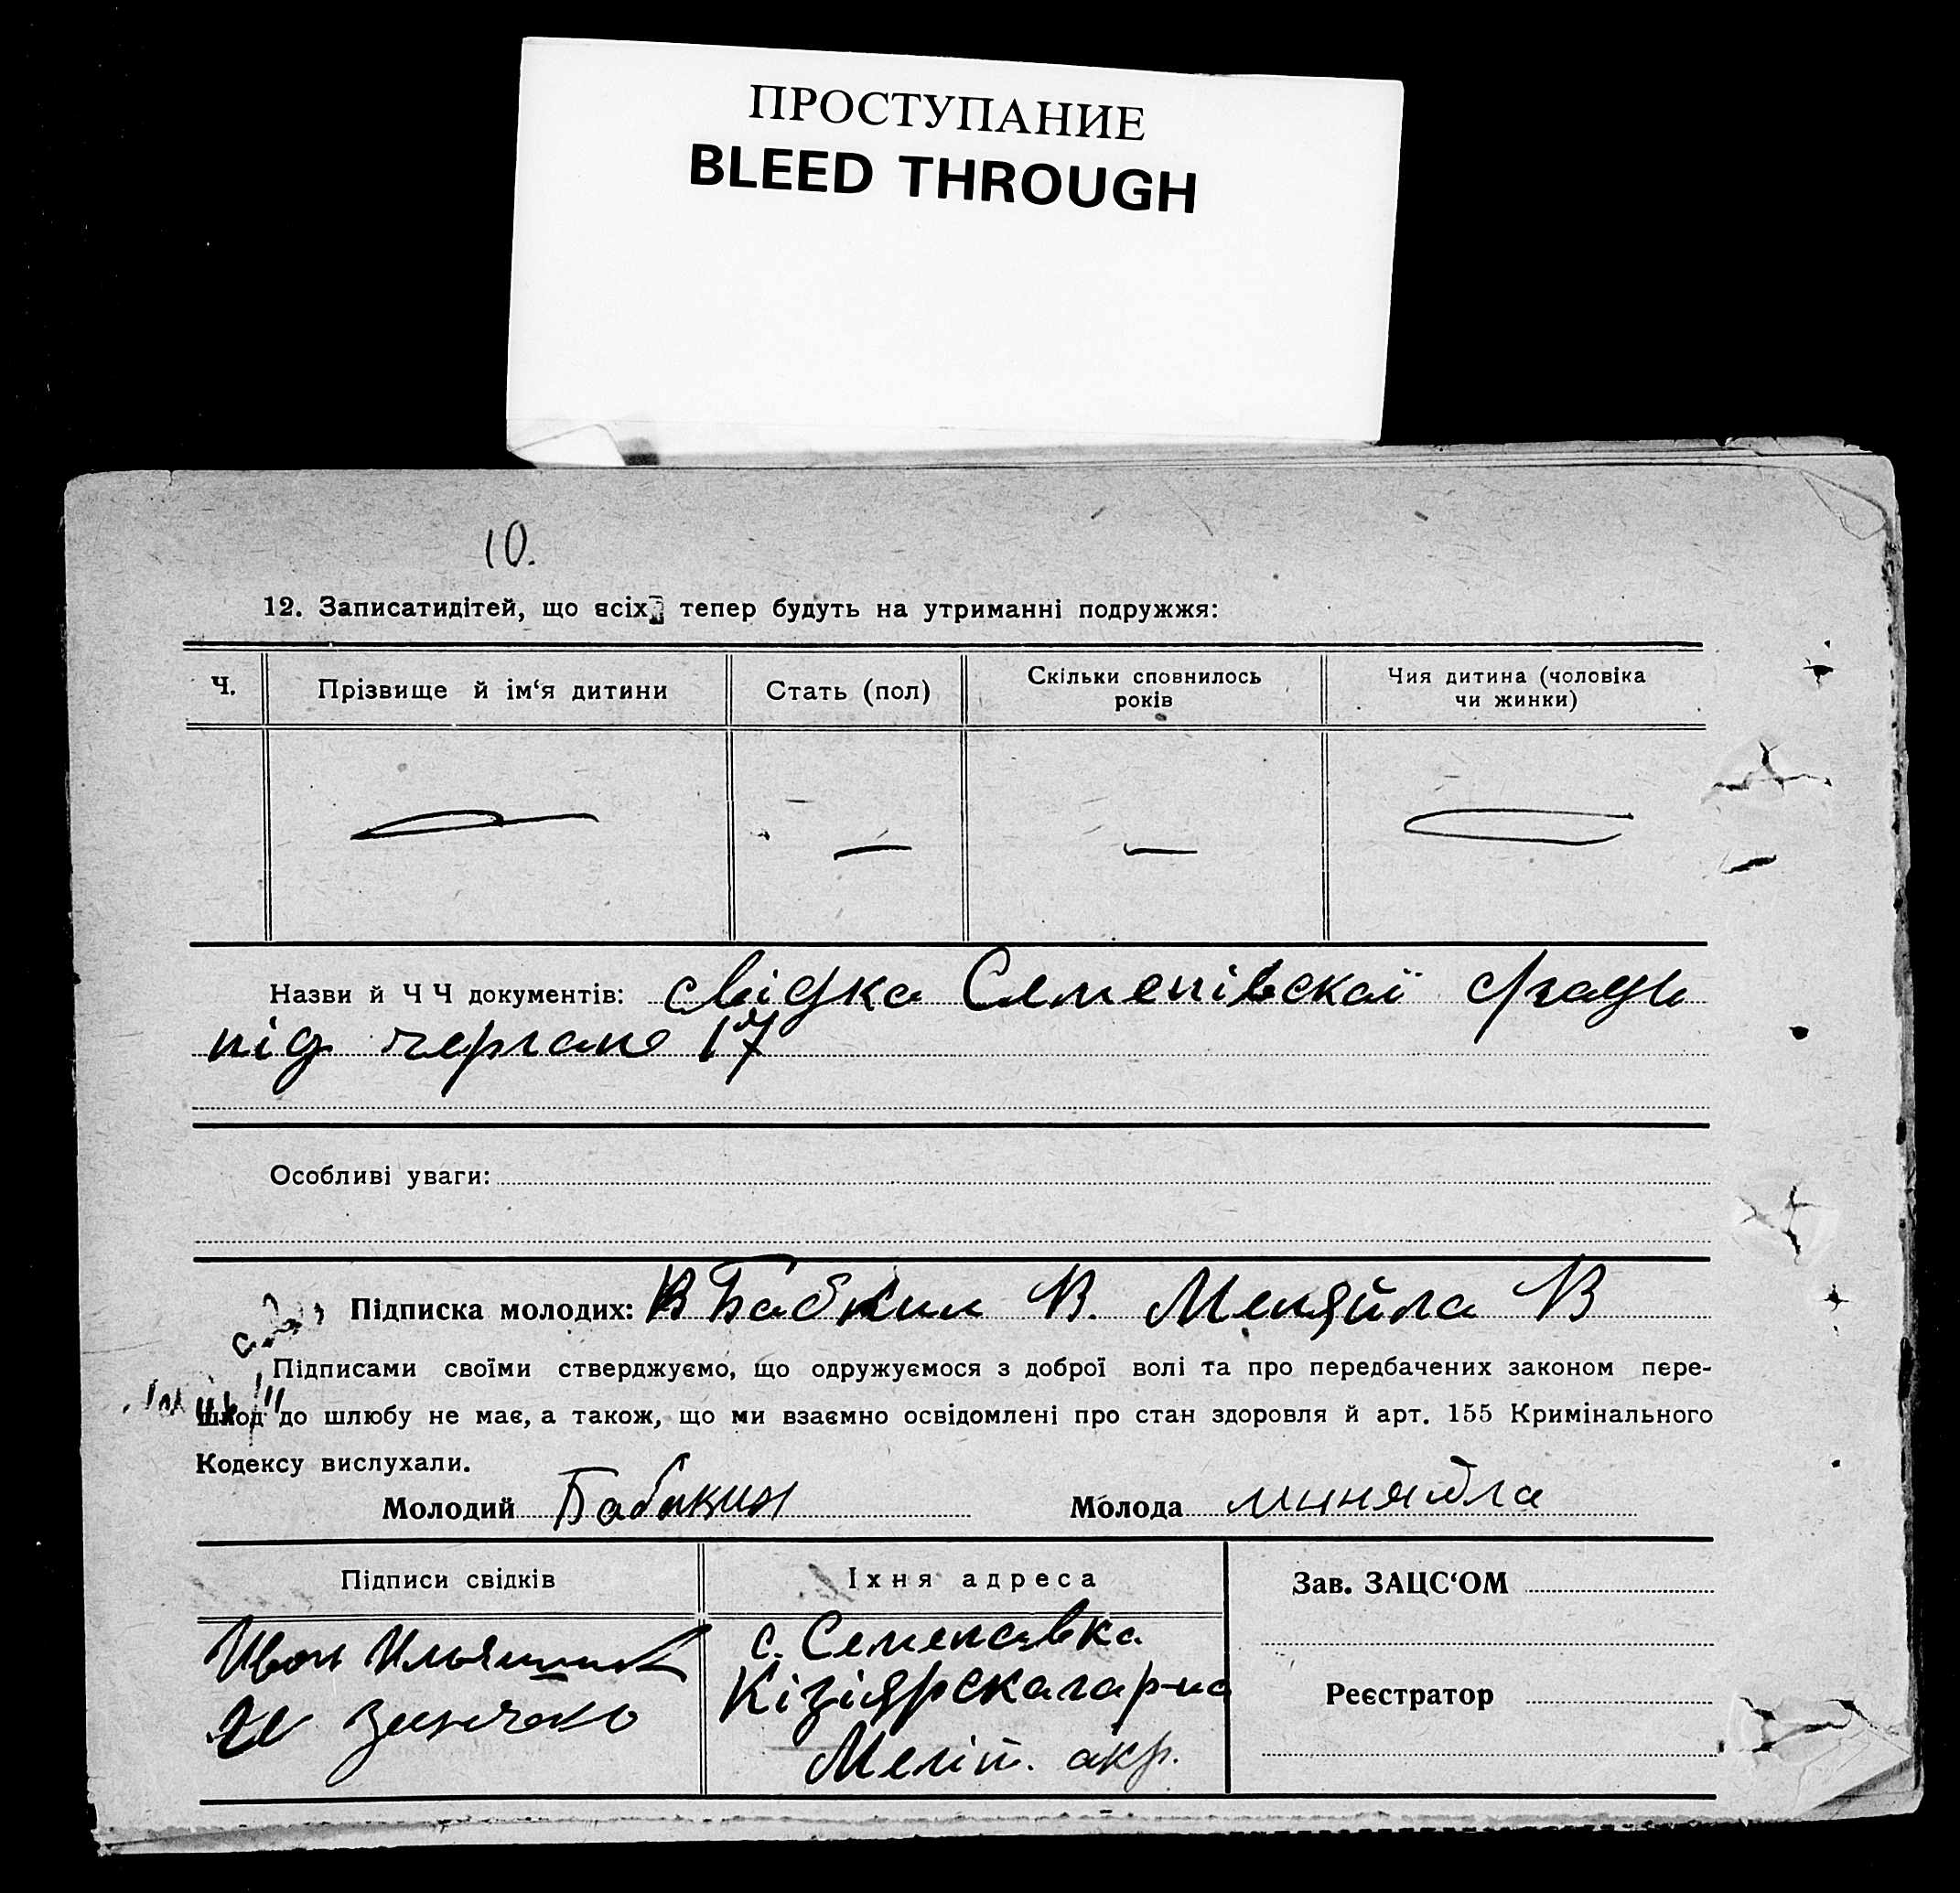 ПРОСТУПАНИЕ
BLEED THROUGH
10.
12. Записатидітей, що всіх тепер будуть на утриманні подружжя:
Ч.
Прізвище й ім‘я дитини
Стать (пол)
Скільки сповнилось
років
Чия дитина (чоловіка
чи жинки)
Назви й Ч Ч документів: свідка Семенівскаї с/гади
під 17
Особливі уваги:
Підписка молодих: В Бабкин В. Меняйла В
Підписами своїми стверджуємо, що одружуємося з доброї волі та про передбачених законом пере-
шкод до шлюбу не має, а також, що ми взаємно освідомлені про стан здоровля й арт. 155 Кримінального
Кодексу вислухали.
Молодий Бабакин Молода
Підписи свідків
Іхня адреса
Зав. ЗАЦС‘ОМ
Іван
с. Семенавка
Кізіярскагарна
Реєстратор
Меліт. акр.